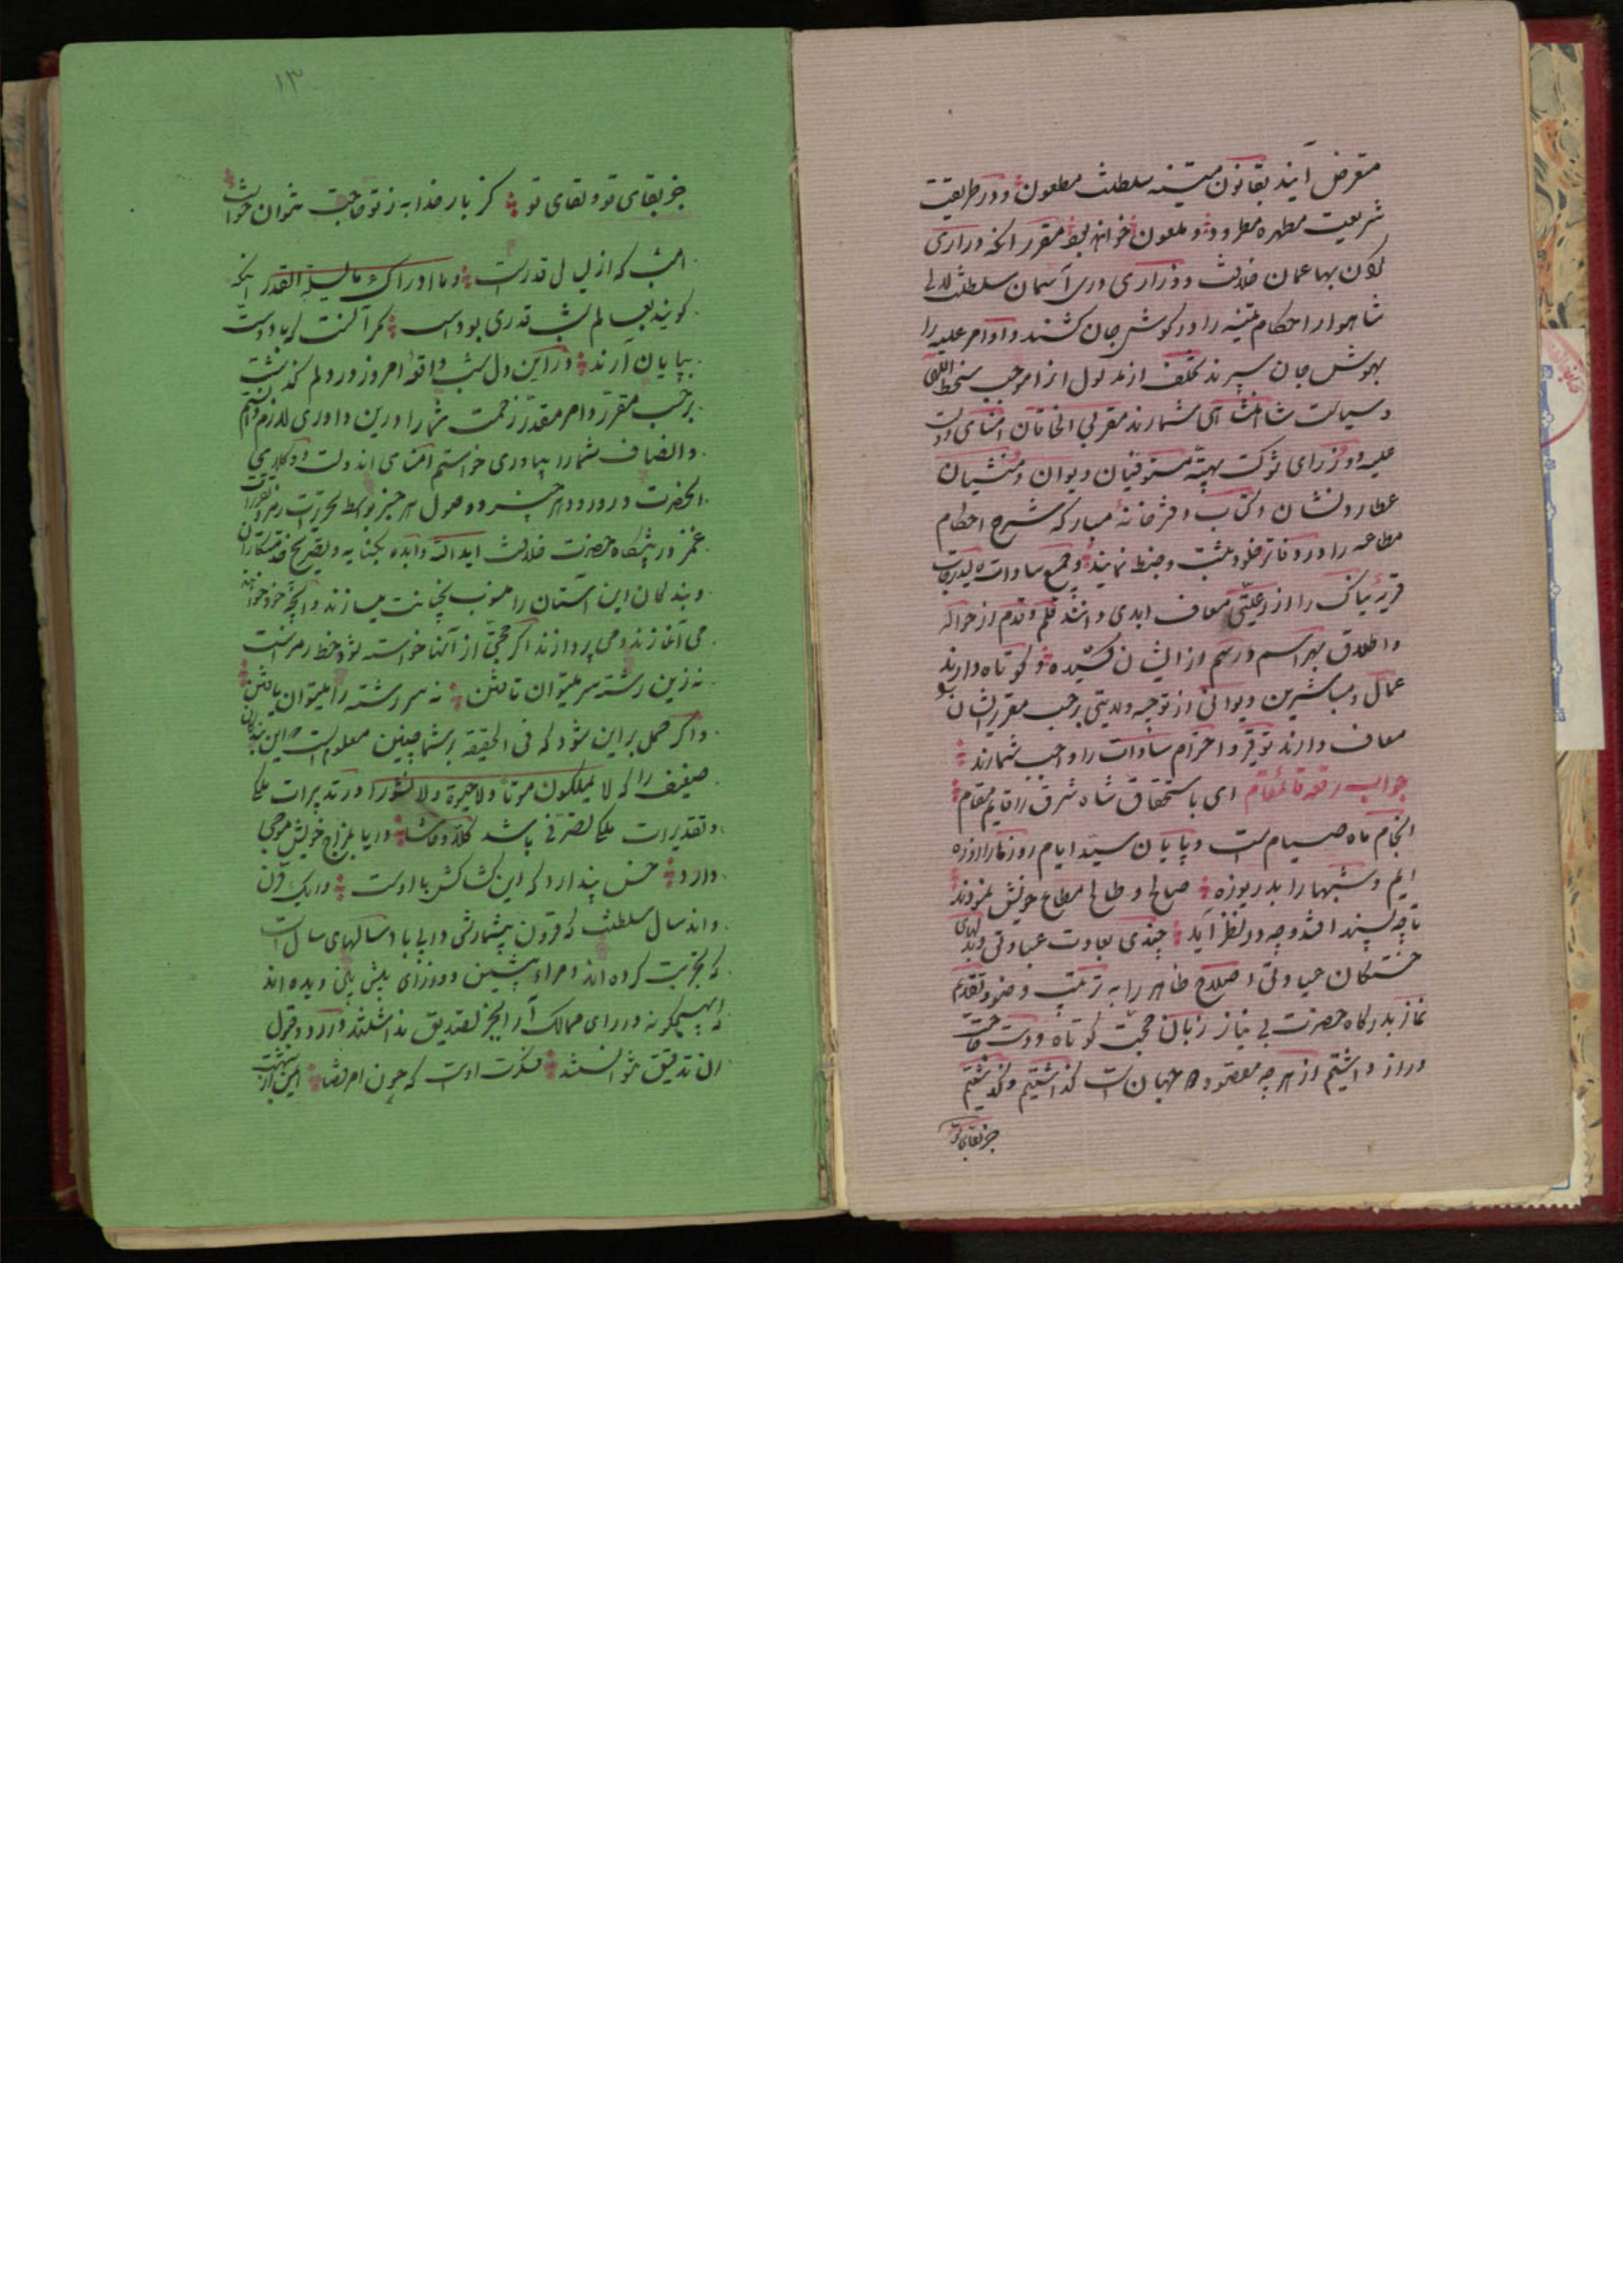 متعرض آیند بقانون متینه سلطنت مطعون و در طریقت
شریعت مطهره مطرود و ملعون خواهند بود مقرر آنکه دراری
عمان خلافت و دراری آسمان سلطنت لالی
شاهوار احکام متینه را در گوش جان کشند و اوامر علیه را
بهوش جان سپرند تخلف از مدلول از موجب سخط الهی
و سیاست شاهنشاهی شمارند مقربی الخاقان امنای دولت
علیه و وزرای شوکت بهیه مستوفیان دیوان و منشیان
عطارد نشان و کتاب دفترخانه مبارکه شرح احکام
مطاعه را در دفاتر خلود ثبت و ضبط نمایند و جمیع سادات
قریه نیاک را از رعیتی معاف ابدی دانند قلم و قدم از حواله
و اطلاق بهر اسم و رسم از ایشان کشیده و کوتاه دارند
عمال و مباشرین دیوانی از توجیه ولایتی برحسب مقرر ایشان
معاف دارند توقیر و احترام سادات را واجب شمارند
جواب رقعه قائمقام ای باستحقاق شاه شرق را قایم مقام
انجام ماه صیام است و پایان سید ایام روزها را روزه
ایم و شبها را بدریوزه صالح و طالح متاع خویش نمودند
تا چه پسند افتد و چه در نظر آید چندی بعادت عبادتی و بدلهای
خستگان عیادتی اصلاح ظاهر را به ترتیب وضو و تقدیم
نماز بدرگاه حضرت بی نیاز زبان حجت کوتاه و دست حاجت
دراز داشتیم از هرچه مقصود جهان است گذاشتیم و گذشتیم
جز بقای تو
۱۳
جز بقای تو و لقای تو کز بار خدا به ز تو حاجت نتوان خواست
امشب که از لیالی قدر است و ما ادراک ما لیلة القدر آنکه
گویند بعالم شب قدری بوداست مگر آنست که با دوست
بپایان آرند در این دل شب واقعه امروز در دلم گذشت
برحسب مقرر و امر مقدر زحمت شما را درین داوری لازم دانستیم
و انصاف شما را بیاوری خواستم امنای اندولت و وکلای
انحضرت در ورود هر چیز و وصول هر خبر بواسطه تحریرات
غمز در پیشگاه حضرت خلافت ایدالله و ابده بکنایه و تصریح خدمتکاران
و بندگان این آستان را منسوب بخیانت میسازند و آنچه خود خواهند
می آغازند و می پردازند اگر حجتی از آنها خواسته شود خط رمز است
نه زین رشته سر میتوان تافتن نه سر رشته را میتوان یافتن
و اگر حمل بر این شود که فی الحقیقه بر شما چنین معلوم است این بندگان
ضعیف را که لا یملکون موتا و لا حیوة و لا نشورا در تدبیرات ملکی
و تقدیرات ملکی تصرفی باشد کلا و حاشا دریا بمزاج خویش موجی
دارد خس پندارد که این کشاکش با اوست در یک قرن
و اند سال سلطنت که قرون بیشمارش در پی باد سالهای سال است
که تجربت کرده اند امراء پیشین و وزرای پیش بین دیده اند
که هیچگونه در رای ممالک آرا بجز تصدیق نداشتند و در رد و قبول
ان تدقیق نتوانستند فکرت اوست که چون امر قضا